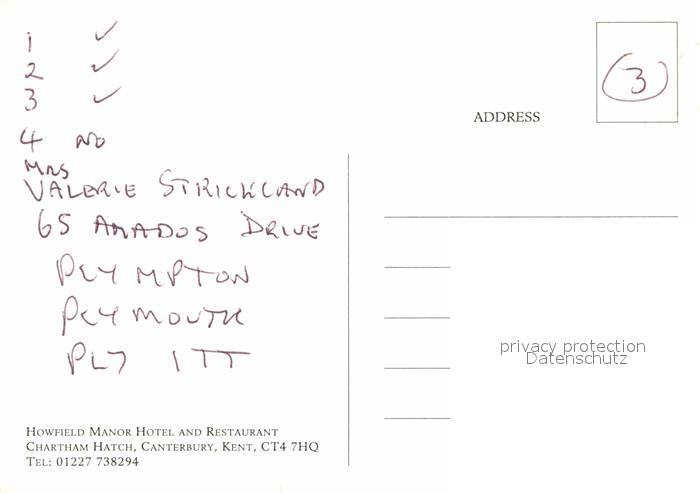 1 ✓
2 ✓
3 ✓
4 NO
MRS
VALERIE STRICKLAND
65 AMADOS DRIVE
PLYMPTON
PLYMOUTH
PL7 1TT
HOWFIELD MANOR HOTEL AND RESTAURANT
CHARTHAM HATCH, CANTERBURY, KENT, CT4 7HQ
TEL: 01227 738294
3
ADDRESS
privacy protection
Datenschutz